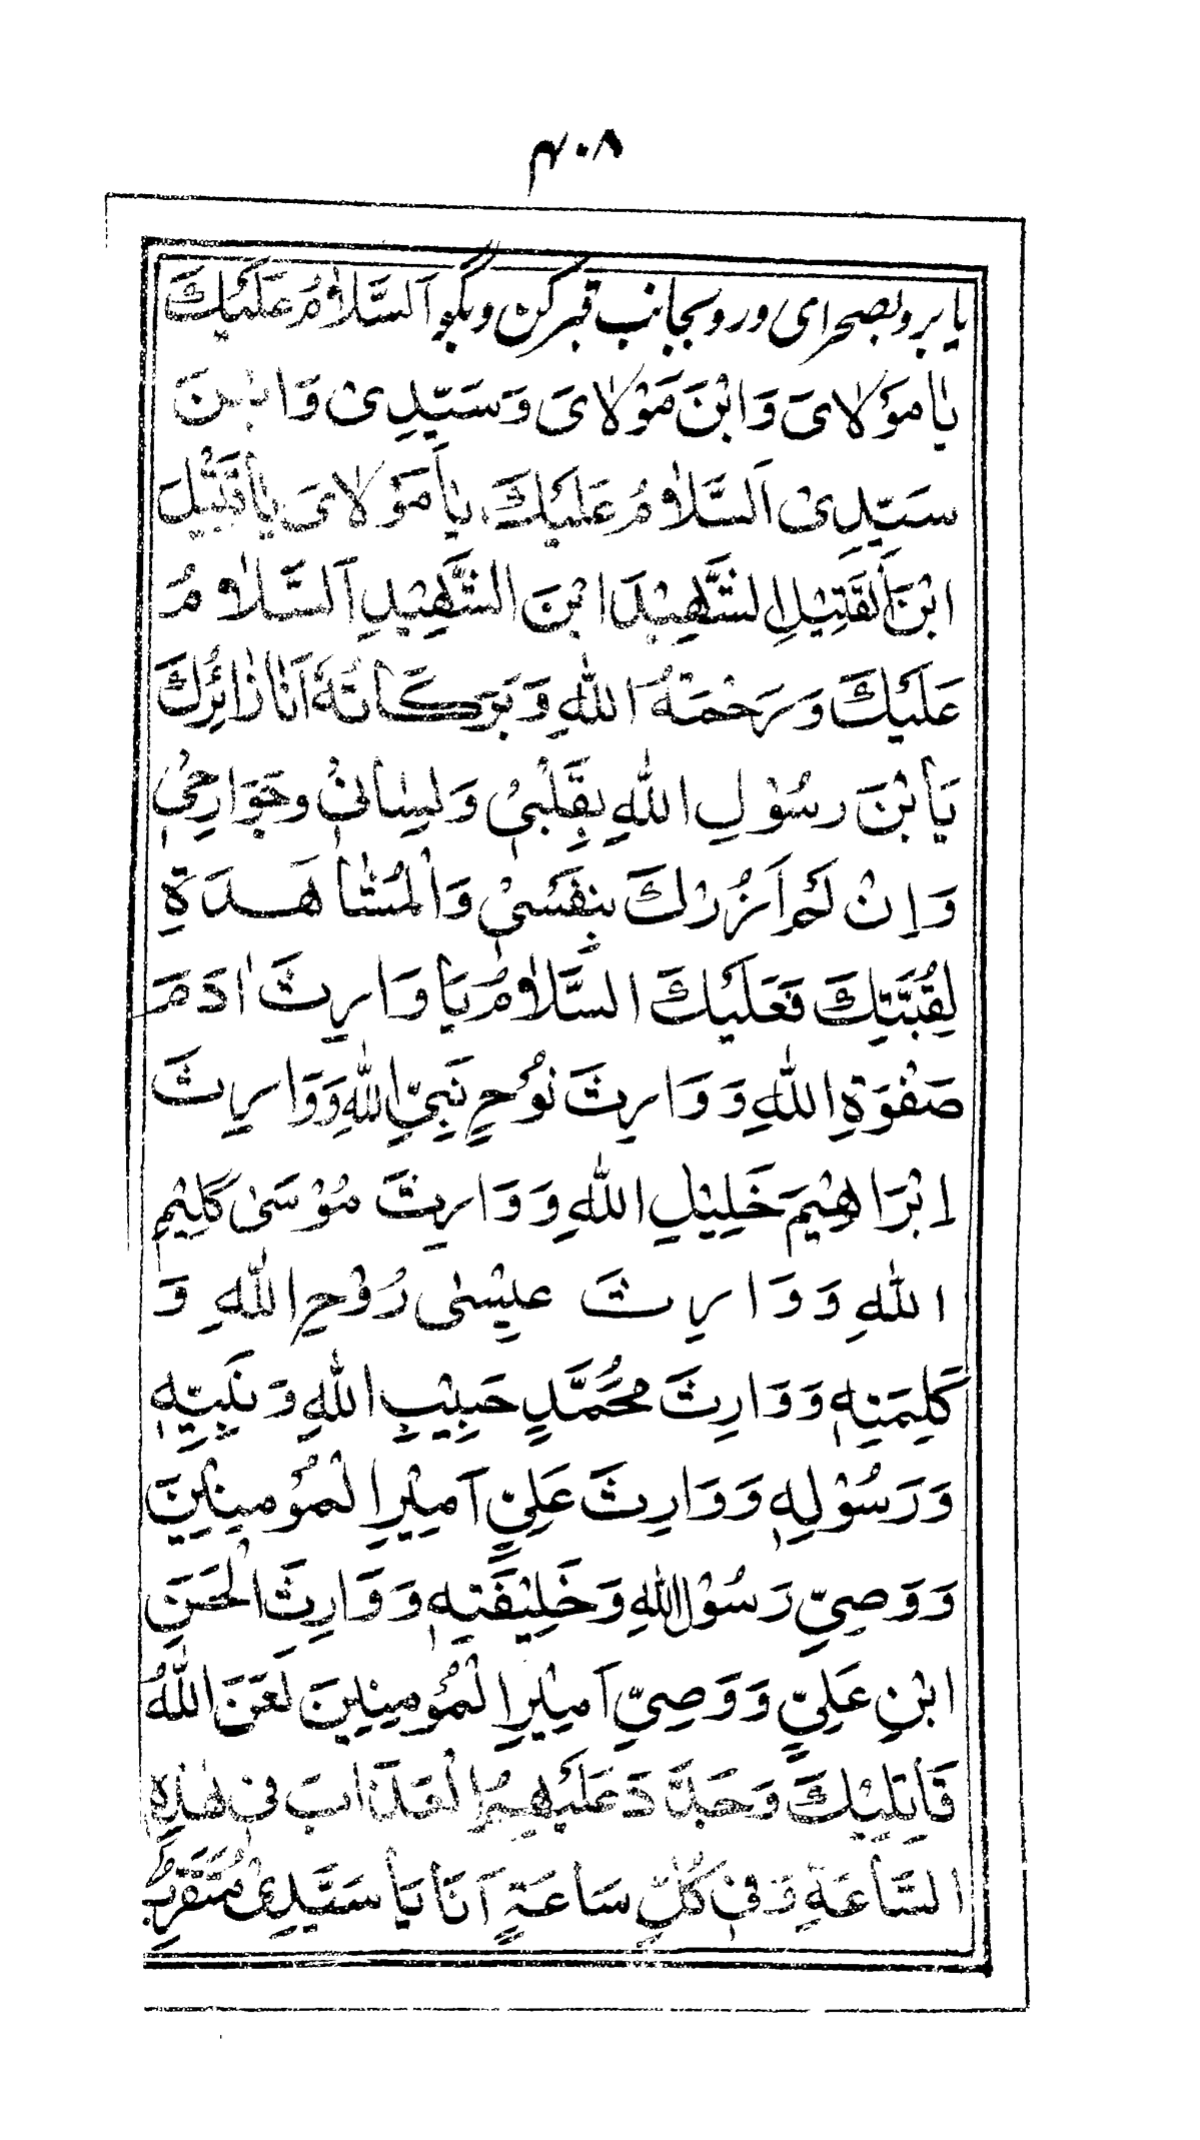 ۴۰۸
یا برو بصحرای و رو بجانب قبر کن و بگو اَلسَّلَامُ عَلَیْكَ
یٰا مَوْلَایَ وَابْنَ مَوْلَایَ وَ سَیِّدِیْ وَابْنَ
سَیِّدِیْ اَلسَّلَامُ عَلَیْكَ یٰا مَوْلَایَ یٰا قَتِیْلَ
ابْنَ الْقَتِیْلِ الشَّهِیْدَ ابْنَ الشَّهِیْدِ اَلسَّلَامُ
عَلَیْكَ وَ رَحْمَةُ اللهِ وَ بَرَكَاتُهُ اَنَا زَائِرُكَ
یَا بْنَ رَسُوْلِ اللهِ بِقَلْبِیْ وَ لِسٰانِیْ وَ جَوَارِحِیْ
وَ اِنْ لَمْ اَزُرْكَ بِنَفْسِیْ وَالْمُشَاهَدَةِ
لِقُبَّتِكَ فَعَلَیْكَ السَّلَامُ یَا وَارِثَ اٰدَمَ
صَفْوَةِ اللهِ وَ وَارِثَ نُوْحٍ نَبِیِّ اللهِ وَ وَارِثَ
اِبْرَاهِیْمَ خَلِیْلِ اللهِ وَ وَارِثَ مُوْسَیٰ كَلِیْمِ
اللهِ وَ وَارِثَ عِیْسٰی رُوْحِ اللهِ وَ
كَلِمَتِهٖ وَ وَارِثَ مُحَمَّدٍ حَبِیْبِ اللهِ وَ نَبِیِّهٖ
وَ رَسُوْلِهٖ وَ وَارِثَ عَلِیٍّ اَمِیْرِ الْمُؤْمِنِیْنَ
وَ وَصِیِّ رَسُوْلِ اللهِ وَ خَلِیْفَتِهٖ وَ وَارِثَ الْحَسَنِ
ابْنِ عَلِیٍّ وَ وَصِیِّ اَمِیْرِ الْمُؤْمِنِیْنَ لَعَنَ اللهُ
قَاتِلِیْكَ وَ جَدَّدَ عَلَیْهِمُ الْعَذَابَ فِیْ هٰذِهِ
السَّاعَةِ وَ فِیْ كُلِّ سَاعَةٍ اَنَا یَا سَیِّدِیْ مُتَقَرِّبٌ